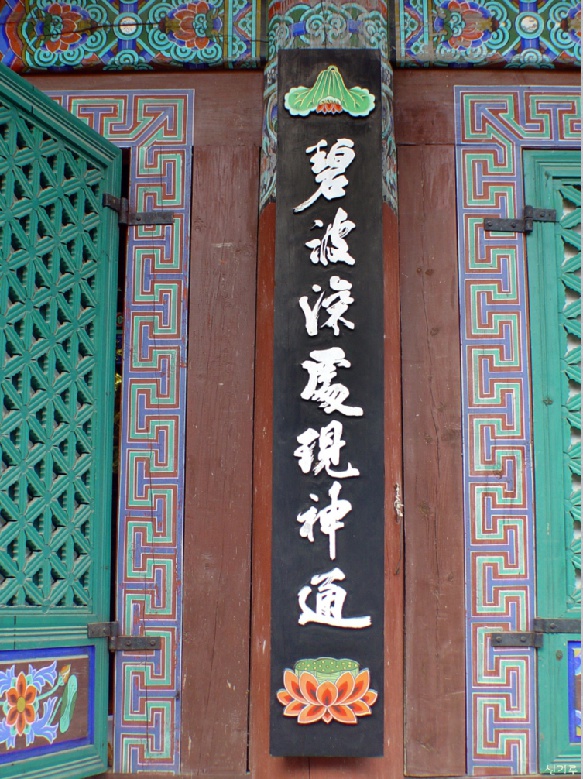 碧波深處現神通
신기루